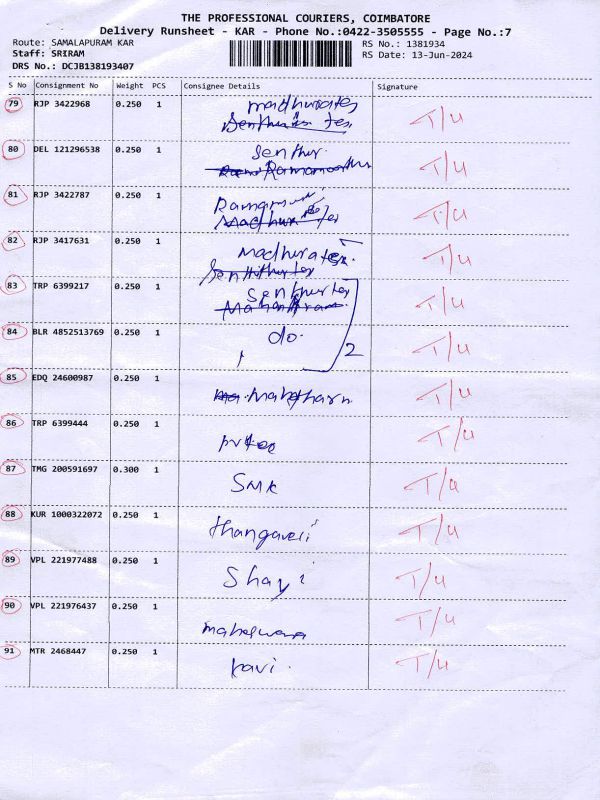 THE PROFESSIONAL COURIERS, COIMBATORE
Delivery Runsheet - KAR - Phone No.:0422-3505555 - Page No.:7
Route: SAMALAPURAM KAR RS No.: 1381934
Staff: SRIRAM RS Date: 13-Jun-2024
DRS No.: DCJB138193407
S No Consignment No Weight PCS Consignee Details Signature
79 RJP 3422968 0.250 1 madhurates T/4
Senthur tex
80 DEL 121296538 0.250 1 Senthur T/4
Ramamoorthu
81 RJP 3422787 0.250 1 T/4
Madhura tex
82 RJP 3417631 0.250 1 madhuratex. T/4
83 TRP 6399217 0.250 1 Senthurtex T/4
84 BLR 4852513769 0.250 1 do. 2 T/4
85 EDQ 24600987 0.250 1 T/4
86 TRP 6399444 0.250 1 T/4
87 TMG 200591697 0.300 1 SMK T/4
88 KUR 1000322072 0.250 1 thangaveli T/4
89 VPL 221977488 0.250 1 T/4
90 VPL 221976437 0.250 1 maheswara T/4
91 MTR 2468447 0.250 1 ravi. T/4